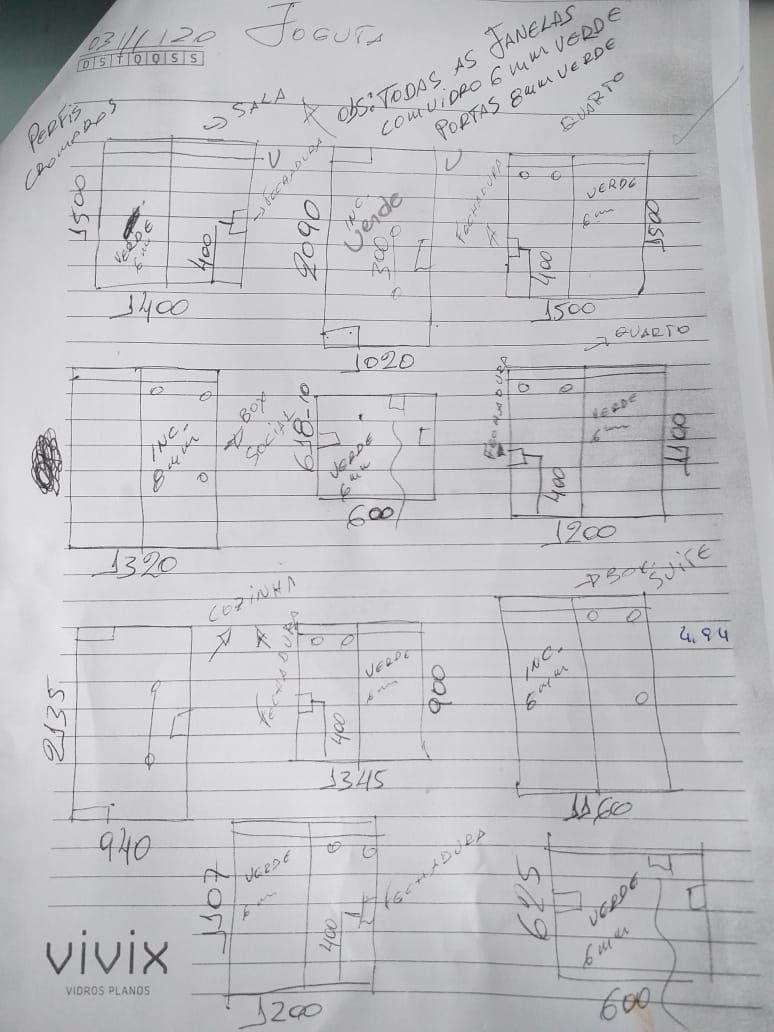 03/11/20 JOGUTA
D S T Q Q S S
OBS: TODAS AS JANELAS
COM VIDRO 6mm VERDE
PORTAS 8mm VERDE
PERFIS
CROMADOS
SALA
QUARTO
1500
VERDE
6mm
400
FECHADURA
1400
2090
INC.
Verde
300
1020
FECHADURA
400
VERDE
6mm
1500
1500
QUARTO
INC.
8mm
BOX
SOCIAL
1320
618
VERDE
6mm
600
FECHADURA
400
VERDE
6mm
1100
1200
COZINHA
BOX SUITE
2135
940
FECHADURA
400
VERDE
6mm
900
1345
INC.
8mm
4,94
1160
1107
VERDE
6mm
400
FECHADURA
1200
625
VERDE
6mm
600
vivix
VIDROS PLANOS